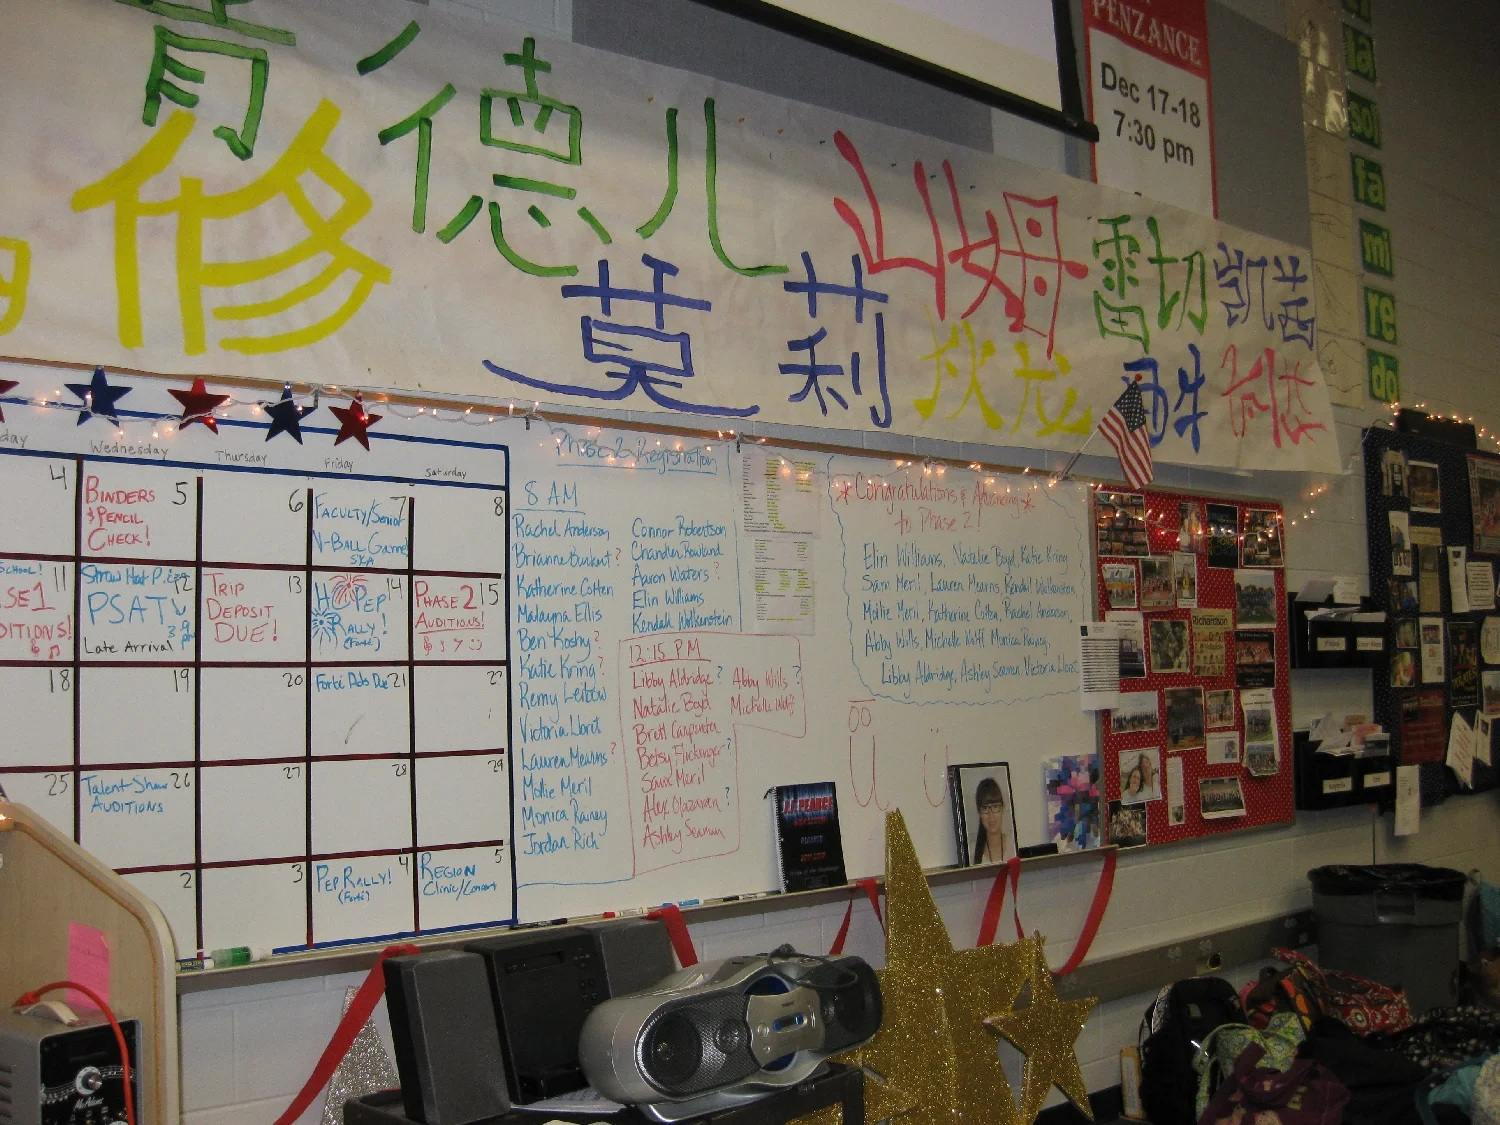 PENZANCE
Dec 17-18
7:30 pm
la
sol
fa
mi
re
do
德儿
山姆
雷切
凯
修
莫莉
狄龙
Wednesday
Thursday
Friday
Saturday
4
BINDERS 5
& PENCIL
CHECK!
6
FACULTY/Senior 7
V-BALL Game
8
SCHOOL! 11
SE 1
DITIONS!
12
PSAT
Late Arrival
TRIP 13
DEPOSIT
DUE!
HOCO PEP 14
RALLY!
(Forté)
PHASE 2 15
AUDITIONS!
18
19
20
Forté Ads Due 21
25
Talent Show 26
AUDITIONS
27
28
29
2
3
PEP RALLY! 4
(Forté)
REGION 5
Clinic/Concert
Phase 2 Registration
8 AM
Rachel Anderson
Brianne Bunkert?
Katherine Cotten
Malayna Ellis
Ben Koshy?
Katie Kring?
Remy Leibow
Victoria Lloret
Lauren Mearns?
Mollie Meril
Monica Rainey
Jordan Rich
Connor Robertson
Chandler Rowland
Aaron Waters?
Elin Williams
Kendall Wolkenstein
12:15 PM
Libby Aldridge?
Natalie Boyd
Brett Carpenter
Betsy Flickinger?
Sam Meril
Alex Olazaran?
Ashley Seaman
Abby Wills?
Michelle Wolff
*Congratulations & Advancing*
to Phase 2!
Elin Williams, Natalie Boyd, Katie Kring
Sam Meril, Lauren Mearns, Kendall Wolkenstein
Mollie Meril, Katherine Cotten, Rachel Anderson,
Abby Wills, Michelle Wolff, Monica Rainey,
Libby Aldridge, Ashley Seaman, Victoria Lloret
Richardson
J.J. PEARCE